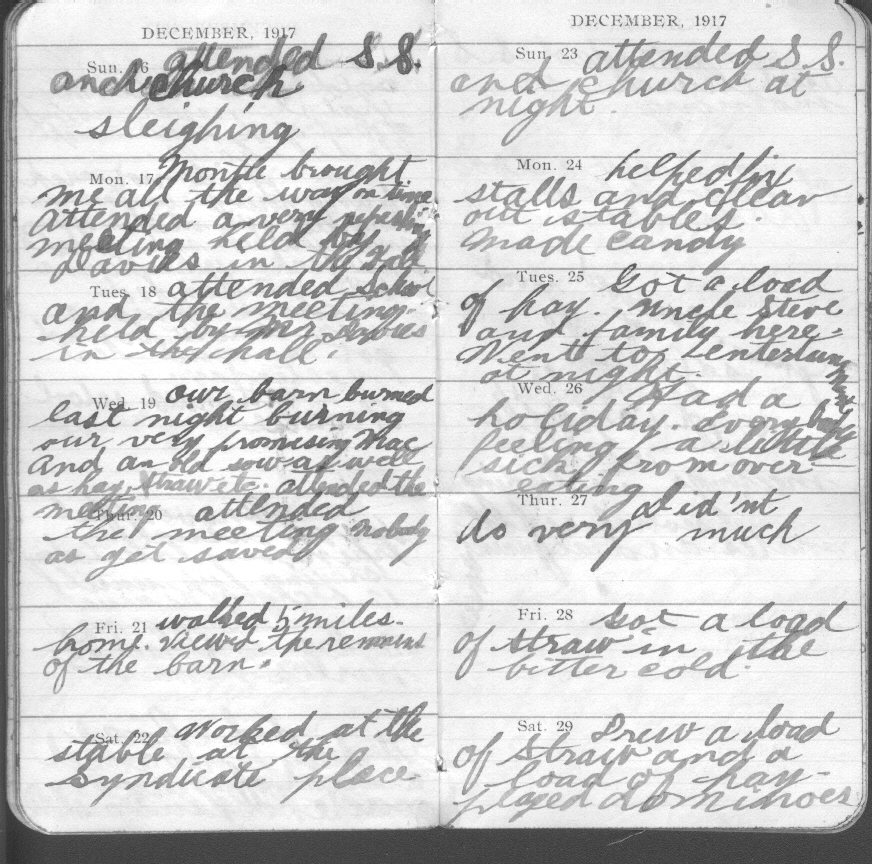 DECEMBER, 1917
Sun. 16 attended S.S.
and church
sleighing
Mon. 17 Montie brought
me all the way on time
Attended a very refreshing
meeting held by
Davies in the Hall
Tues. 18 attended School
and the meeting
held by Mr Davies
in the hall.
Wed. 19 our barn burned
last night burning
our very promising Mac
And an old sow as well
as hay, straw etc. attended the
meeting
Thur. 20 attended
the meeting nobody
as yet saved
Fri. 21 walked 5 miles
home. Viewed the remains
of the barn.
Sat. 22 Worked at the
stable at the
Syndicate place
DECEMBER, 1917
Sun. 23 attended S.S.
and church at
night.
Mon. 24 helped fix
stalls and clean
out stables.
Made candy
Tues. 25 Got a load
of hay. Uncle Steve
and family here.
Went to entertainment
at night.
Wed. 26 Had a
holiday. Everybody
feeling a little
sick from over-
eating
Thur. 27 did'nt
do very much
Fri. 28 Got a load
of straw in the
bitter cold.
Sat. 29 Drew a load
of straw and a
load of hay-
played dominoes